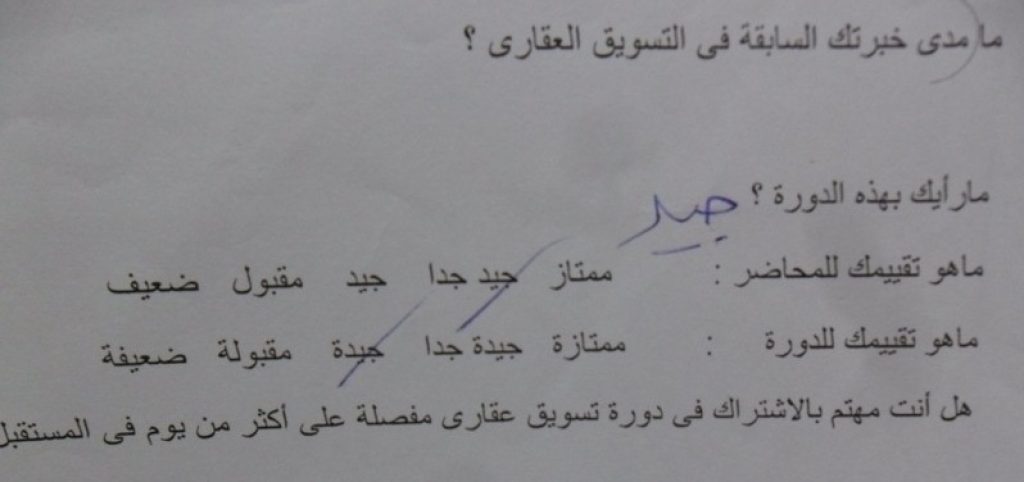 ما مدى خبرتك السابقة فى التسويق العقارى ؟
مارأيك بهذه الدورة ؟ جيد
ماهو تقييمك للمحاضر : ممتاز جيد جدا جيد مقبول ضعيف
ماهو تقييمك للدورة : ممتازة جيدة جدا جيدة مقبولة ضعيفة
هل أنت مهتم بالاشتراك فى دورة تسويق عقارى مفصلة على أكثر من يوم فى المستقبل